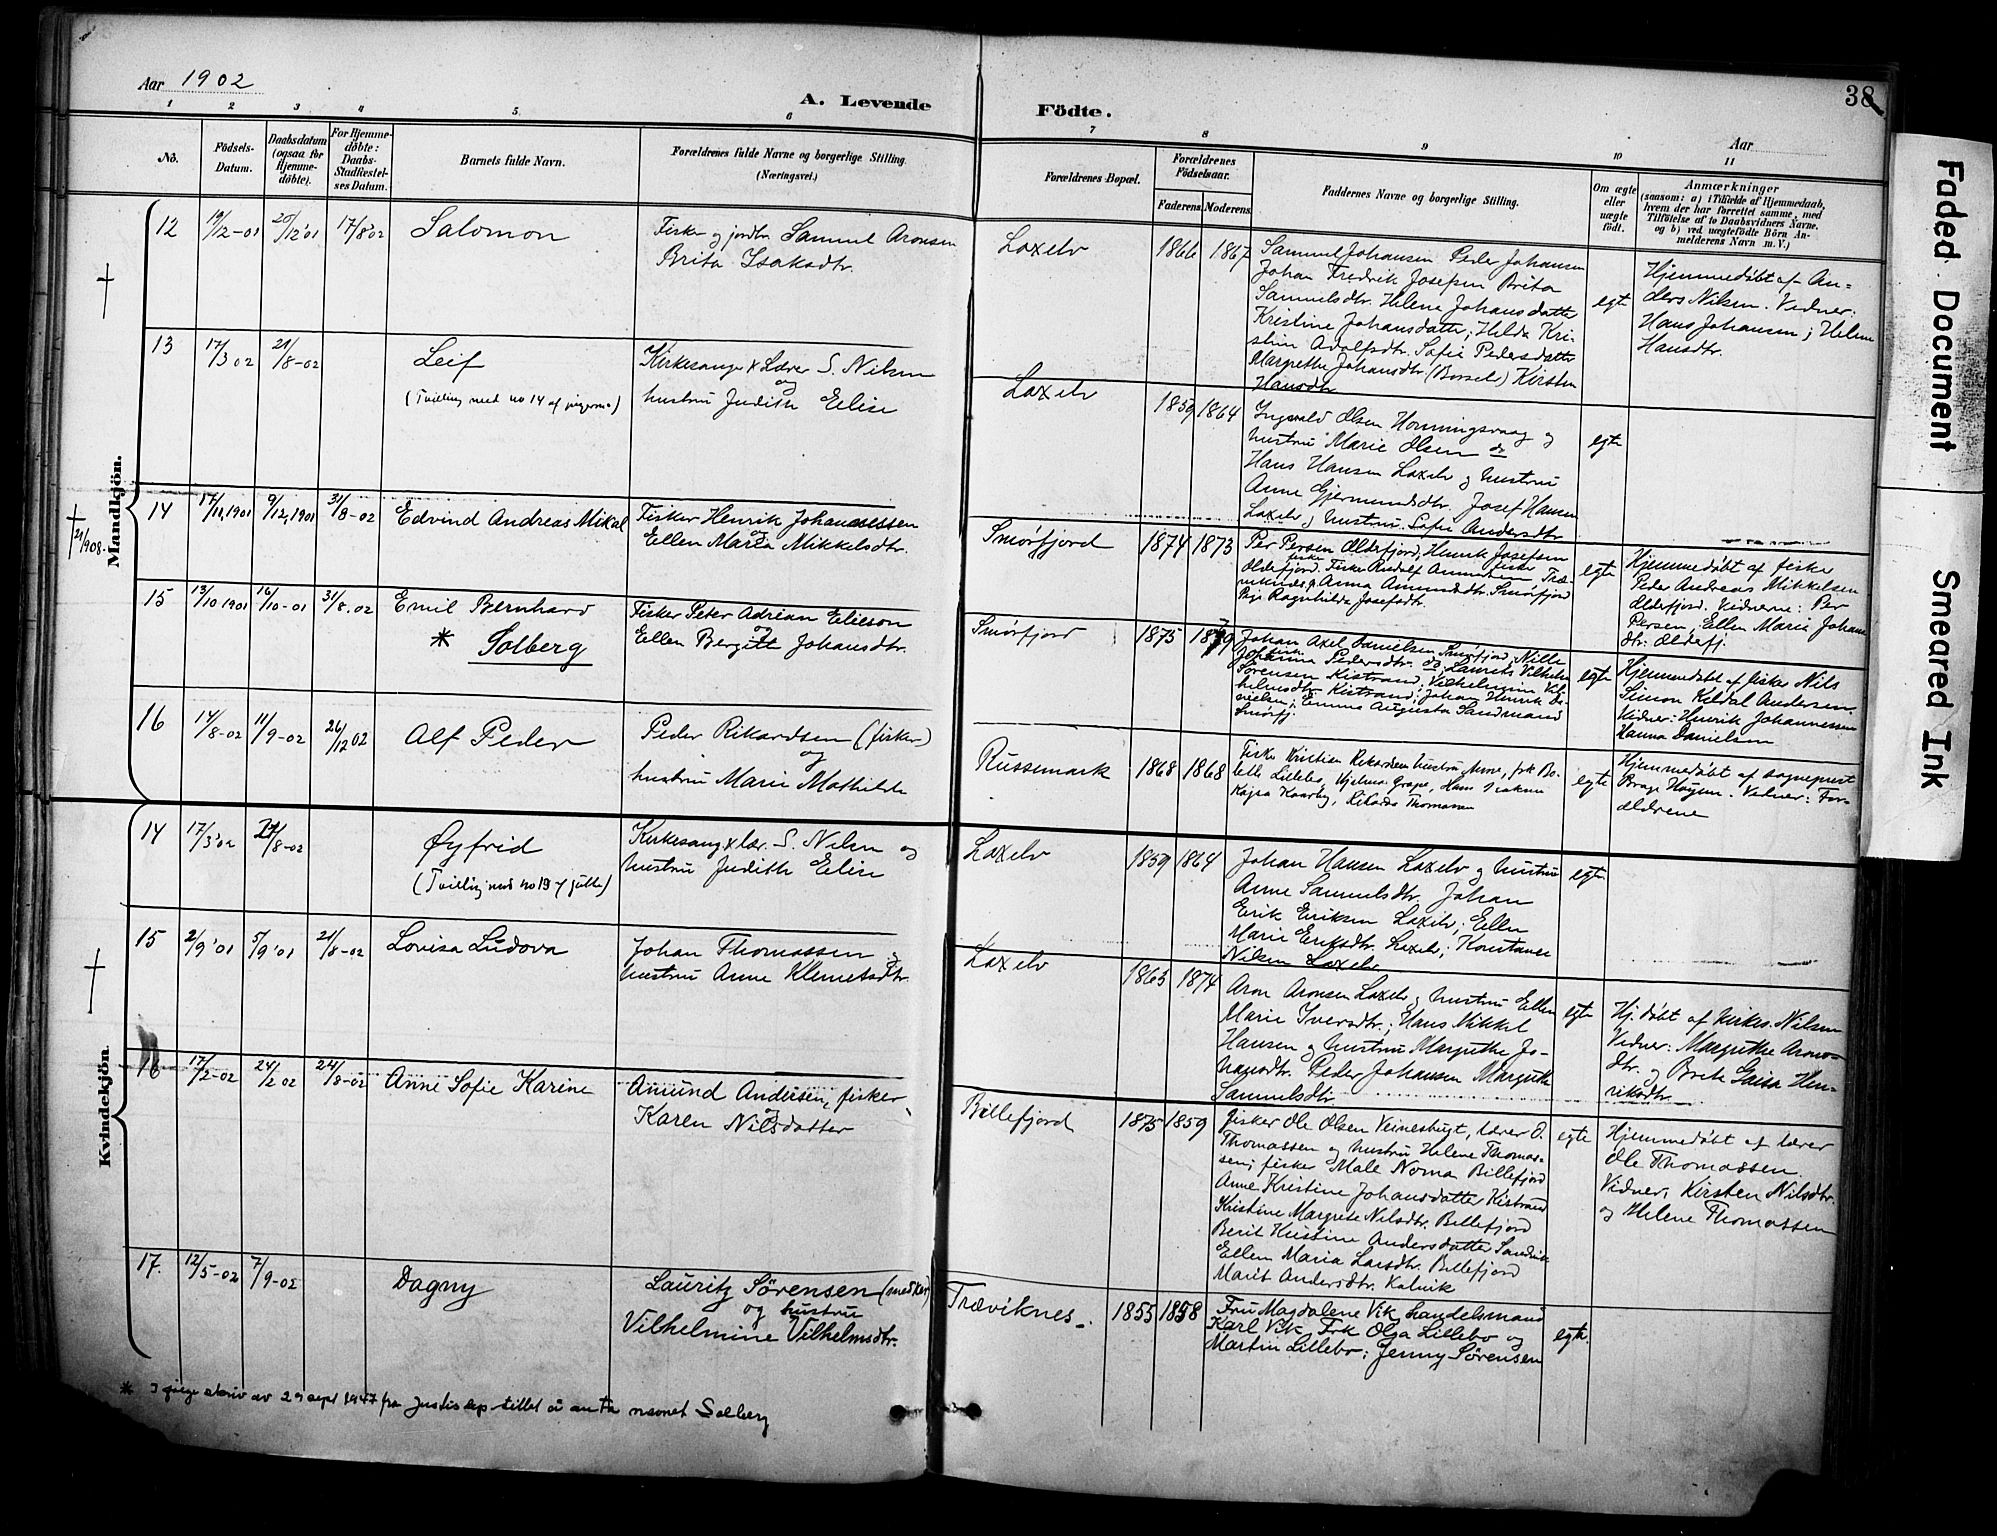 Aar 1902
A. Levende Födte.
38
Aar
1 2 3 4 5 6 7 8 9 10 11
No.
Födsels-
Datum.
Daabsdatum
(ogsaa for
Hjemme-
döbte).
For Hjemme-
döbte:
Daabs-
Stadfæstel-
ses Datum.
Barnets fulde Navn.
Forældrenes fulde Navne og borgerlige Stilling.
(Næringsvei.)
Forældrenes Bopæl.
Forældrenes
Födselsaar.
Faderens. Moderens.
Faddernes Navne og borgerlige Stilling.
Om ægte
eller
uægte
födt.
Anmærkninger
(saasom: a) i Tilfælde af Hjemmedaab,
hvem der har forrettet samme, med
Tilföielse af to Daabsvidners Navne.
og b) ved uægtefödte Börn An-
melderens Navn m. V.)
Mandkjön.
12 19/12-01 29/12'01 17/8'02 Salomon
Fisker og jordbr. Samuel Aronsen
Brita Isaksdtr.
Laxelv 1866 1867
Samuel Johansen Peder Johansen
Johan Fredrik Josefsen Brita
Samuelsdtr. Helene Johansdatter
Kristine Johansdatter; Helda Kri-
stine Adolfsdtr. Sofie Pedersdatter
Margrethe Johansdtr. (Børselv) Kirsten
Hansdtr
egte
Hjemmedøbt af An-
ders Nilsen. Vidner:
Hans Johansen; Helene
Hansdtr.
13 17/3 02 21/8-02 Leif
(Tvilling med no 14 af pigerne)
Kirkesanger & Lærer S. Nilsen
og
hustru Judith Elise
Laxelv 1859 1864
Ingvald Olsen Honningsvaag og
hustru Marie Olsen do
Hans Hansen Laxelv og hustru
Anne Gjermundsdtr. Josef Hansen
Laxelv og hustru Sofie Andersdtr.
egte
21/1908.
14 17/11,1901 9/12,1901 31/8-02 Edvind Andreas Mikal
Fisker Henrik Johannessen
og
Ellen Maria Mikkelsdtr.
Smørfjord 1874 1873
Per Persen Olderfjord, Henrik Josefsen
Olderfjord. Fisker Rudolf
Anna Amundsdtr. Smørfjord
Pige Ragnhilda Josefsdtr.
egte
Hjemmedøbt af fisker
Peder Andreas Mikkelsen
Olderfjord. Vidnerne: Per
Persen, Ellen Marie Johans
dtr. Olderfj.
15 13/10 1901 16/10-01 31/8.02 Emil Bernhard
* Solberg
Fisker Peter Adrian Eliesen
og
Ellen Bergitt Johansdtr.
Smørfjord 1875 1879
Johan Axel Danielsen Smørfjord, Nille
Johanna Pedersdtr. do; Laurits Vilhelm
Sørensen Kistrand; Vilhelmine Vil-
helmsdtr Kistrand; Johan Henrik Da-
nielsen, Emma Augusta Sandmand
Smørfj.
egte
Hjemmedøbt af fisker Nils
Simon Keldal Andersen.
Vidner: Henrik Johannessen
Hanna Danielsen
16 14/8-02 11/9-02 26/12 02 Alf Peder
Peder Rikardsen (fisker)
og
hustru Marie Mathilde
Russemark 1868 1868
Fisker Kristian Rikardsen hustru Anne, frk Bo-
lette Lillebo, Hjelmar Grape, Hans Isaksen
Kajsa Kaarby, Rikards Thomassen
egte
Hjemmedøbt af sogneprest
Brage Høyem. Vidner: For-
ældrene
Kvindekjön.
14 17/3'02 21/8-02 Øyfrid
(Tvilling med no 13 af gutte)
Kirkesang. & lær. S. Nilsen og
hustru Judith Elise
Laxelv 1859 1864
Johan Hansen Laxelv og hustru
Anne Samuelsdtr. Johan
Erik Eriksen Laxelv; Ellen
Marie Eriksdtr. Laxelv; Konstance
Nilsen Laxelv
egte
15 2/9'01 5/9'01 21/8-02 Lovisa Ludova
Johan Thomassen og
hustru Anne Klemetsdtr.
Laxelv 1863 1874
Aron Aronsen Laxelv og hustru Ellen
Marie Iversdtr.; Hans Mikkel
Hansen og hustru Margrethe Jo-
hansdtr. Peder Johansen Margrethe
Samuelsdtr.
egte
Hj. døbt af kirkes. Nilsen
Vidner: Margrethe Arons-
dtr. og Brita Gaisa Hen-
riksdtr
16 17/2-02 24/2 02 24/8-02 Anne Sofie Karine
Amund Andersen, fisker
og
Karen Nilsdatter
Billefjord 1875 1859
fisker Ole Olsen Veinesbugt, lærer O.
Thomassen og hustru Helene Thomas-
sen; fisker Male Noma Billefjord
Anne Kristine Johansdatter Kistrand
Kristine Margrete Nilsdtr. Billefjord
Berit Kristine Andersdatter Sandvik
Ellen Maria Larsdtr. Billefjord
Marit Andersdtr. Kalvik
egte
Hjemmedøbt af lærer
Ole Thomassen.
Vidner, Kirsten Nilsdtr.
og Helene Thomassen
17. 12/5-02 7/9-02 Dagny
Lauritz Sørensen (snedker)
og hustru
Vilhelmine Vilhelmsdtr.
Træviknes. 1855 1858
Fru Magdalene Vik, handelsmand
Karl Vik, Frk Olga Lillebo og
Martin Lillebo; Jenny Sørensen
egte.
* I følge skriv av 29 sept 1947 fra Justisdep tillet å anta navnet Solberg
Faded Document
Smeared Ink